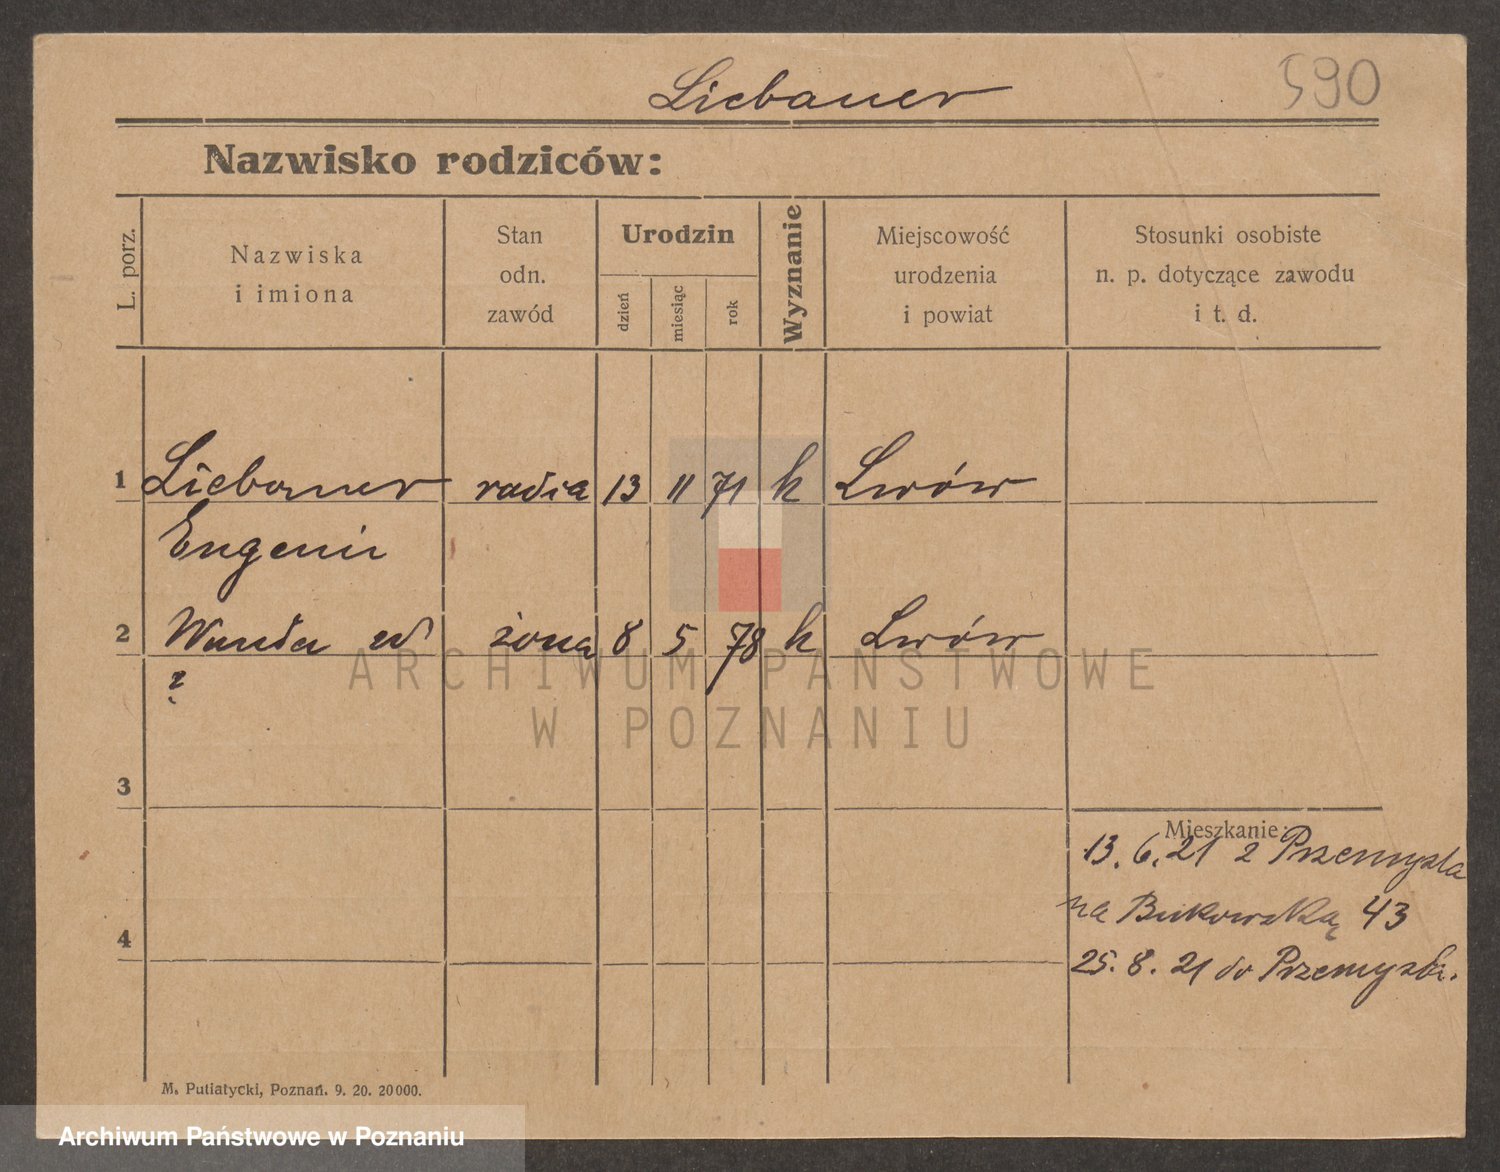 Liebauer
590
Nazwisko rodziców:
L. porz.
Nazwiska
i imiona
Stan
odn.
zawód
Urodzin
dzień
miesiąc
rok
Wyznanie
Miejscowość
urodzenia
i powiat
Stosunki osobiste
n. p. dotyczące zawodu
i t. d.
1 Liebauer radca 13 11 71 k Lwów
Eugeniu
2 Wanda żona 8 5 78 k Lwów
?
ARCHIWUM PAŃSTWOWE
W POZNANIU
3
Mieszkanie:
13. 6. 21 z Przemyśla
na Bukowską 43
4
25. 8. 21 do Przemyśla.
M. Putiatycki, Poznań. 9. 20. 20000.
Archiwum Państwowe w Poznaniu